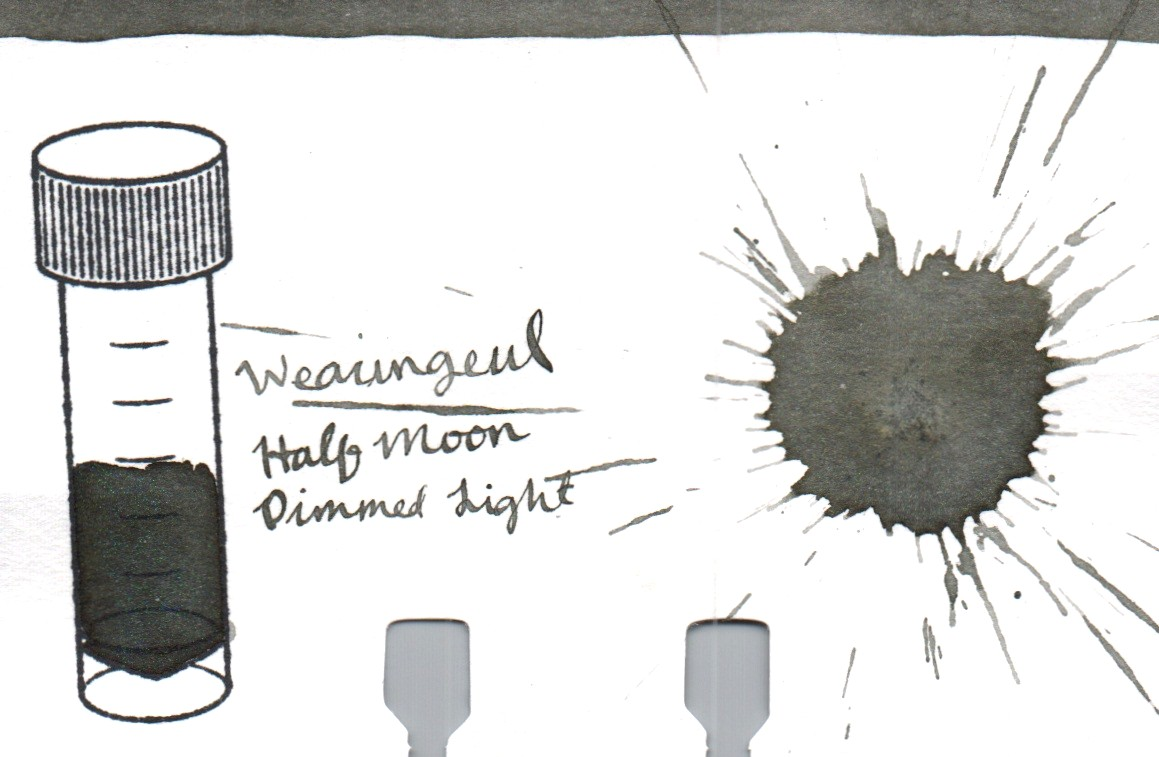 Wearingeul
Half Moon
Dimmed Light